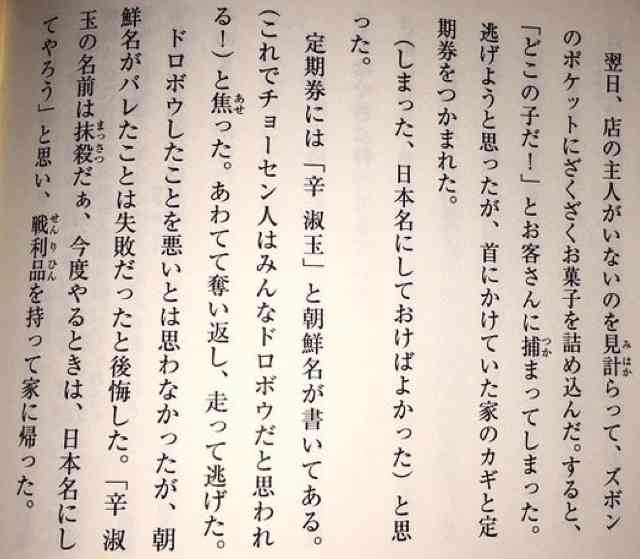 翌日、店の主人がいないのを見計らって、ズボン
のポケットにざくざくお菓子を詰め込んだ。すると、
「どこの子だ！」とお客さんに捕まってしまった。
逃げようと思ったが、首にかけていた家のカギと定
期券をつかまれた。
（しまった、日本名にしておけばよかった）と思
った。
定期券には「辛 淑玉」と朝鮮名が書いてある。
（これでチョーセン人はみんなドロボウだと思われ
る！）と焦った。あわてて奪い返し、走って逃げた。
ドロボウしたことを悪いとは思わなかったが、朝
鮮名がバレたことは失敗だったと後悔した。「辛 淑
玉の名前は抹殺だぁ、今度やるときは、日本名にし
てやろう」と思い、戦利品を持って家に帰った。